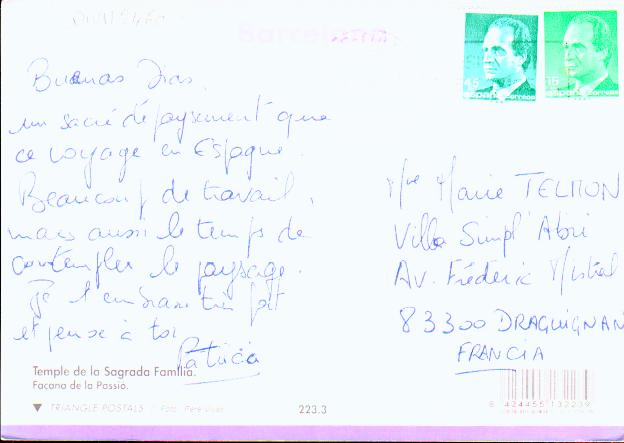 Barcelona
Buenos Dias
un sacré dépaysement que
ce voyage en Espagne.
Beaucoup de travail,
mais aussi le temps de
contempler le paysage.
Je t'embrasse très fort
et pense à toi
Patricia
Mme Marie TELMON
Villa Simpl' Abri
Av. Fréderic Mistral
83300 DRAGUIGNAN
FRANCIA
45
15
Temple de la Sagrada Família.
Façana de la Passió.
▼ TRIANGLE POSTALS
223.3
8 424455 132239